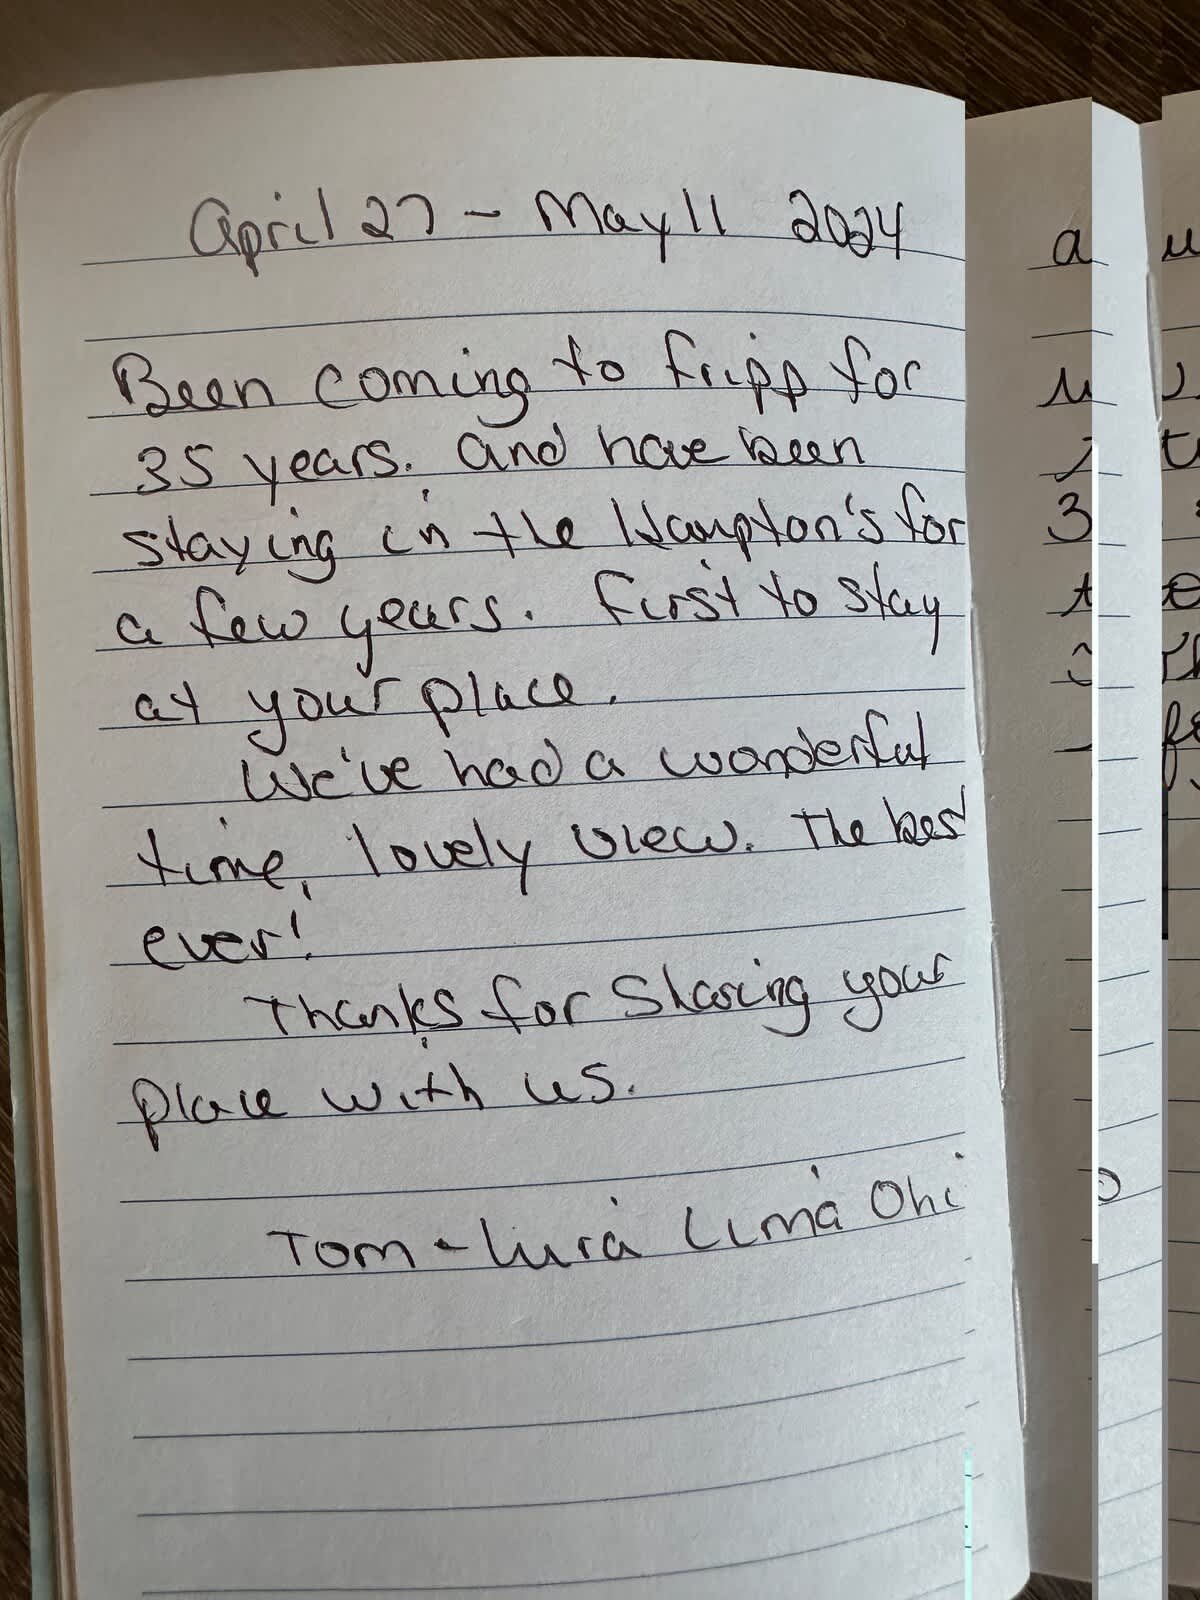 April 27 - May 11 2024
Been coming to Fripp for
35 years. and have been
staying in the Hampton's for
a few years. First to stay
at your place.
We've had a wonderful
time, lovely view. The best
ever!
Thanks for Sharing your
place with us.
Tom - Lima Ohi